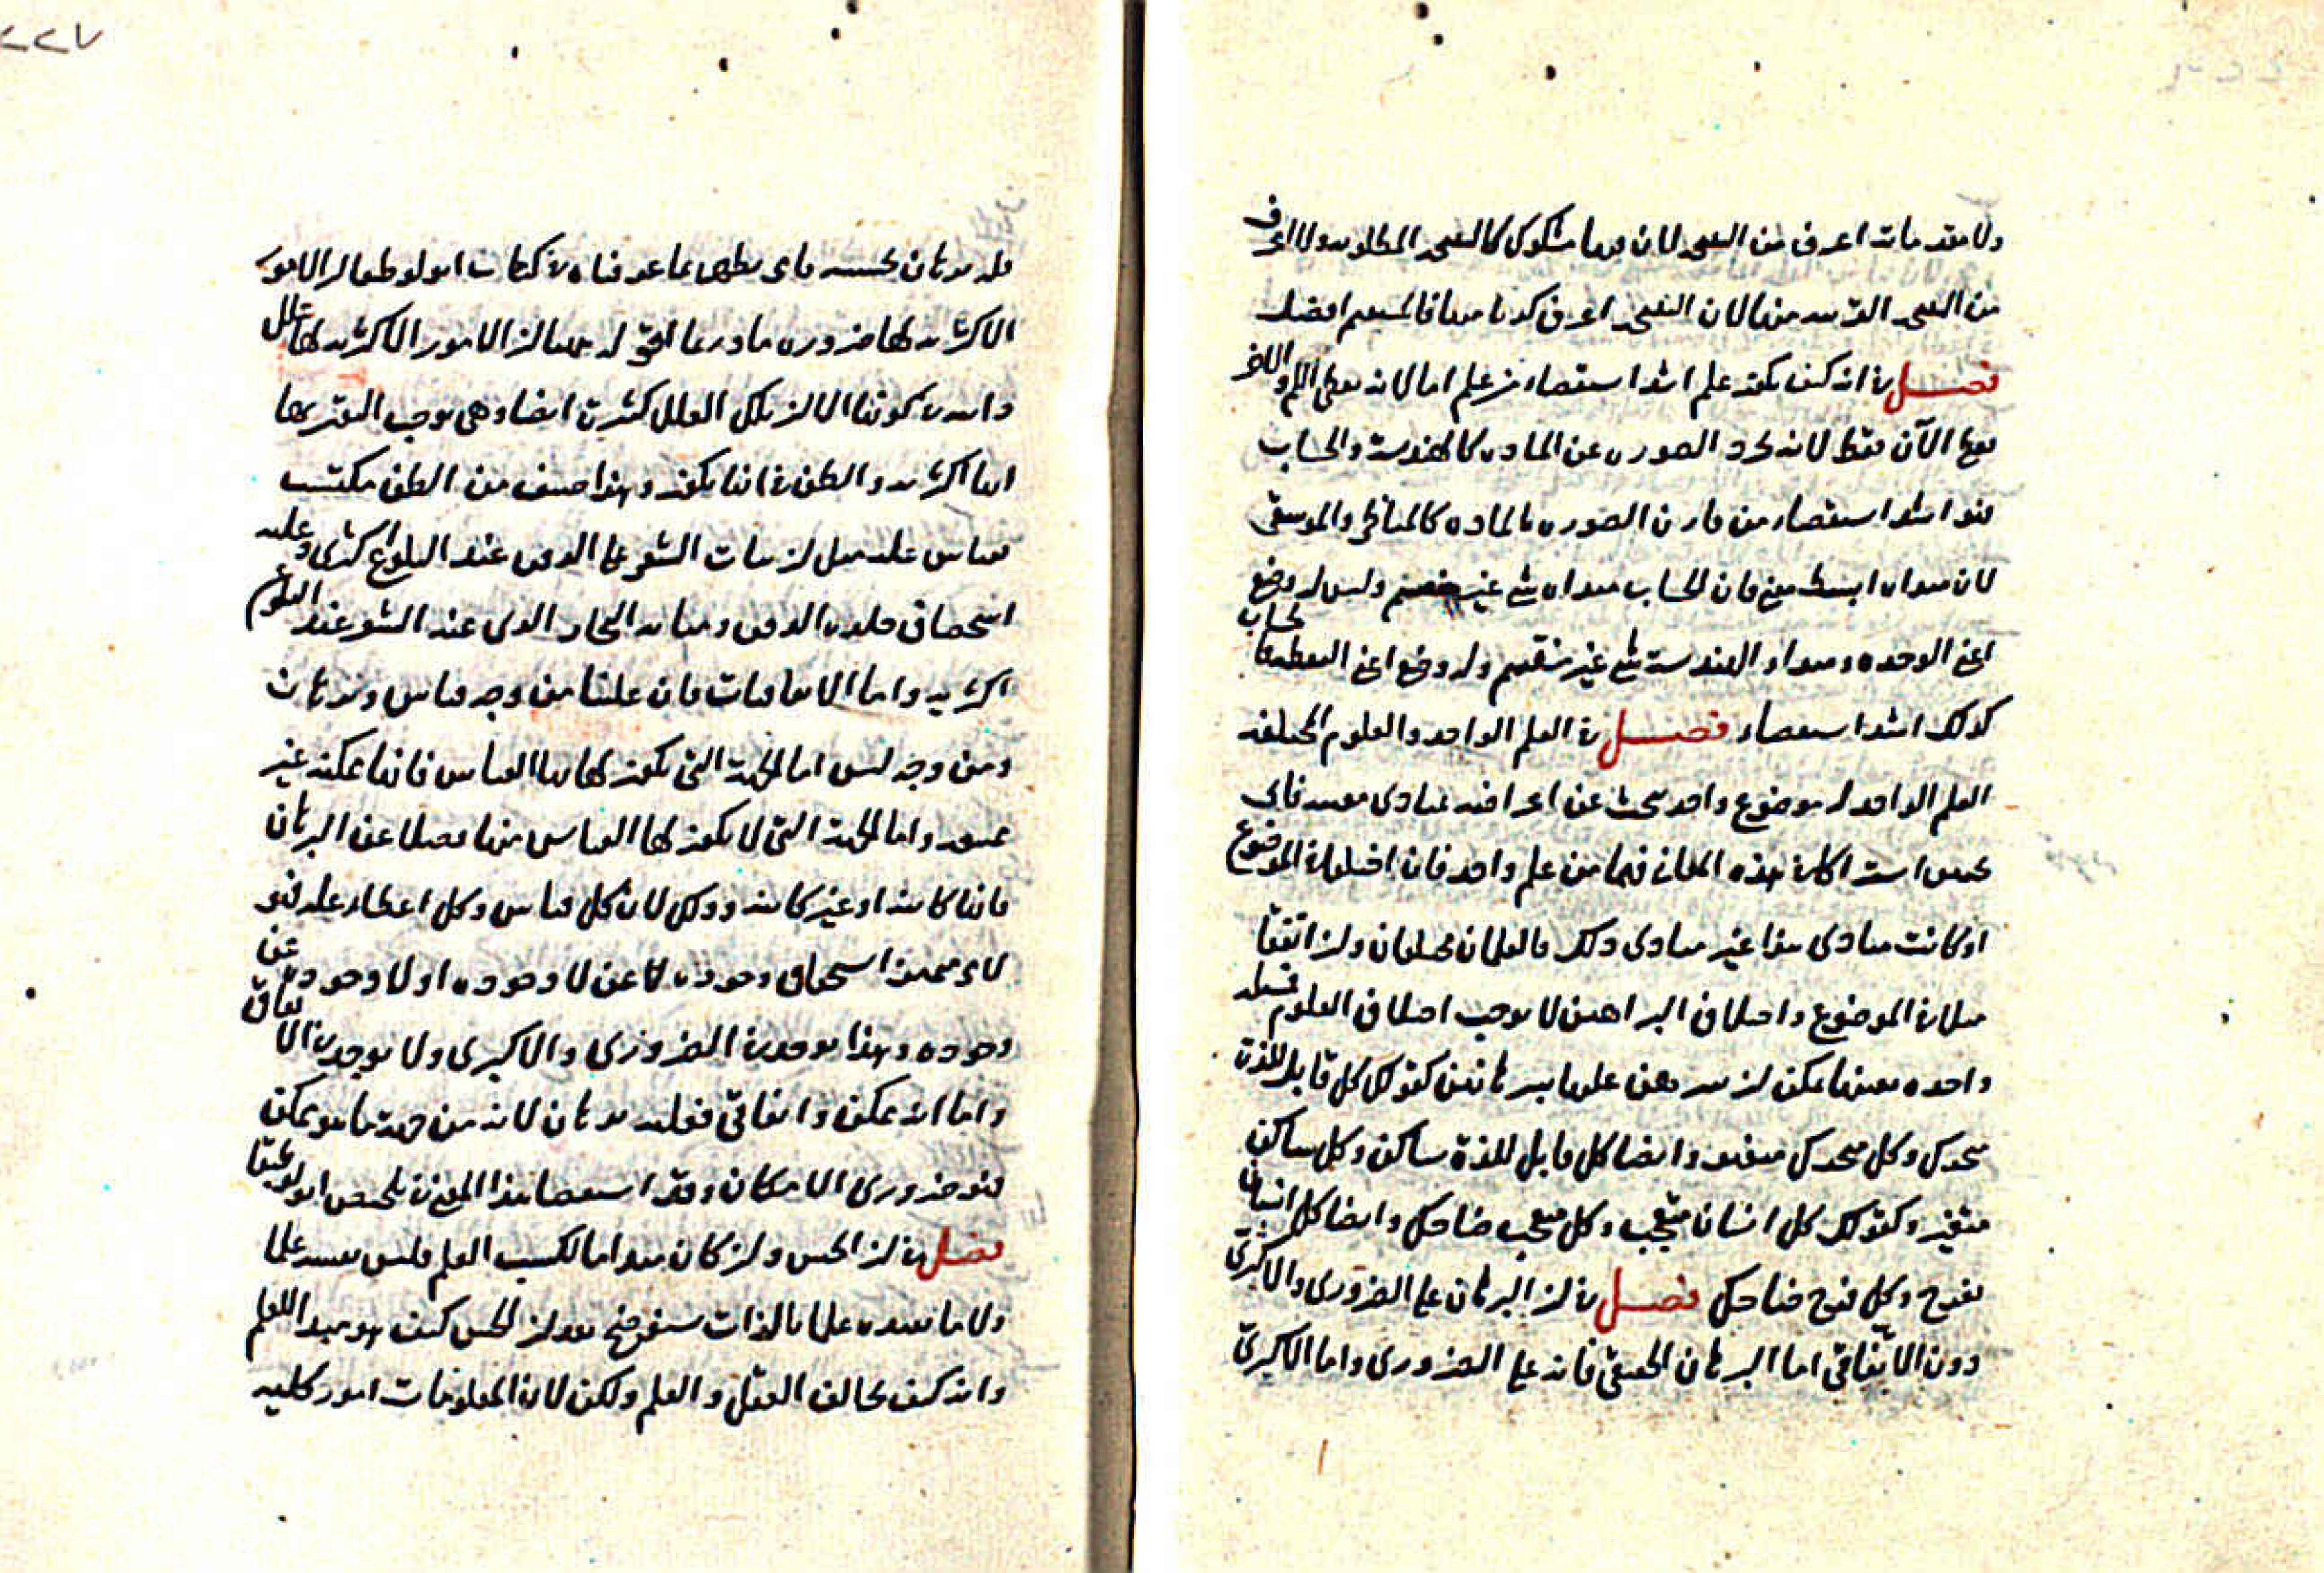 ولا مقدمات اعرف من النتيجة لان فيها مشكوك كالنتيجة المطلوبة ولا اعرف
من النتيجة القريبة منها لان النتيجة اعرف كذبا منها فالمستقيم افضل
فصل في انه كيف يكون علم اشد استقصاء من علم اما لانه يعطي اللم والاخر
يعطي الآن فقط لانه يجرد الصورة عن المادة كالهندسة والحساب
فهو اشد استقصاء من قارن الصورة بالمادة كالمناظر والموسيقى
لان مبداه ابسط منه فان الحساب مبداه شي غير منقسم وليس له وضع
اعني الوحدة ومبداء الهندسة شي غير منقسم وله وضع اعني النقطة فالحساب
كذلك اشد استقصاء فصل في العلم الواحد والعلوم المختلفة
العلم الواحد له موضوع واحد يبحث عن اعراضه بمبادئ معينة فاي
بحثين اشتركا في هذه المعاني فهما من علم واحد فان اختلفا في الموضوع
او كانت مبادي هذا غير مبادي ذلك فالعلمان مختلفان وان اتفقا
مثلا في الموضوع واختلاف البراهين لا يوجب اختلاف العلوم فمسئلة
واحدة بعينها يمكن ان يبرهن عليها ببرهانين كقولك كل قابل للذة
متحرك وكل متحرك متغير وايضا كل قابل للذة ساكن وكل ساكن
متغير وكقولك كل انسان متعجب وكل متعجب ضاحك وايضا كل انسان
يفرح وكل فرح ضاحك فصل في ان البرهان على الضروري والاكثري
دون الاتفاقي اما البرهان الحقيقي فانه على الضروري واما الاكثري
فله برهان بحسبه فاي يظهر مما عرفناه في كتاب انولوطيقا ان الامور
الاكثرية لها ضرورة ما وربما الحق له ايضا ان الامور الاكثرية لها علل
دائمة في كونها الا ان تلك العلل كثيرة ايضا وهي توجب اليقين بها
انها اكثرية والظن في انها تكون وهذا صنف من الظن مكتسب
بقياس عليه مثل ان نبات الشعر على الذقن عند البلوغ اكثري وعليه
استحصاف جلدة الذقن ومتانة البخار الذي عنه الشعر عند البلوغ
اكثرية واما الاتفاقيات فان عليها من وجه قياس وبرهان
ومن وجه ليس اما الجهة التي يكون لها بها القياس فانها ممكنة غير
واما الجهة التي لا يكون لها القياس منها فضلا عن البرهان
فانها كائنة او غير كائنة وذلك لان كل قياس وكل اعطاء علة فهو
لاي استحقاق وجوده لا عن لا وجوده او لا وجوده عن
وجوده وهذا يوجد في الضروري والاكثري ولا يوجد في الاتفاق
واما انه ممكن واتفاقي فعليه برهان لانه من جهة ما هو ممكن
فهو ضروري الامكان وقد استقصي هذا المعنى في تلخيص انولوطيقا
فصل في ان الحس وان كان مبدا ما لكسب العلم فليس نفسه علما
ولا ما نفيده علما بالذات سنوضح بعد ان الحس كيف هو مبدا للعلم
وانه كيف يخالف العقل والعلم ولكن لان المعلومات امور كلية
٢٢٧